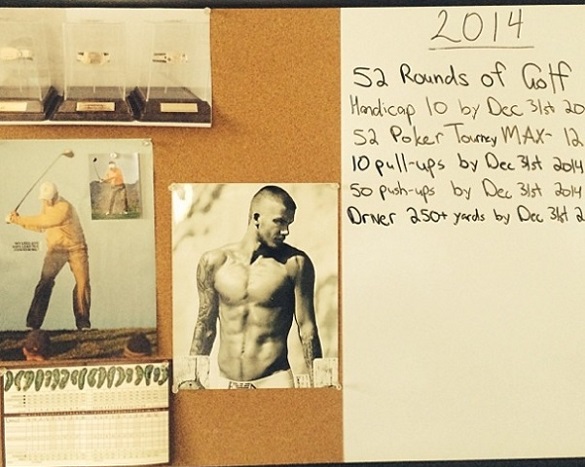 2014
52 Rounds of Golf
Handicap 10 by Dec 31st 20
52 Poker Tourney MAX- 12
10 pull-ups by Dec 31st 2014
50 push-ups by Dec 31st 2014
Driver 250+ yards by Dec 31st 2